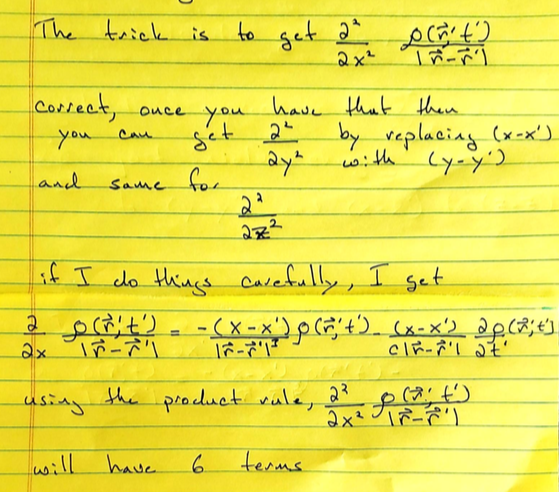 The trick is to get ∂²/∂x² ρ(r⃗′,t′)/|r⃗-r⃗′|
correct, once you have that then
you can get ∂²/∂y² by replacing (x-x′)
with (y-y′)
and same for
∂²/∂z²
if I do things carefully, I get
∂/∂x ρ(r⃗′,t′)/|r⃗-r⃗′| = -(x-x′)/|r⃗-r⃗′|³ ρ(r⃗′,t′) - (x-x′)/c|r⃗-r⃗′| ∂ρ(r⃗′,t′)/∂t′
using the product rule, ∂²/∂x² ρ(r⃗′,t′)/|r⃗-r⃗′|
will have 6 terms